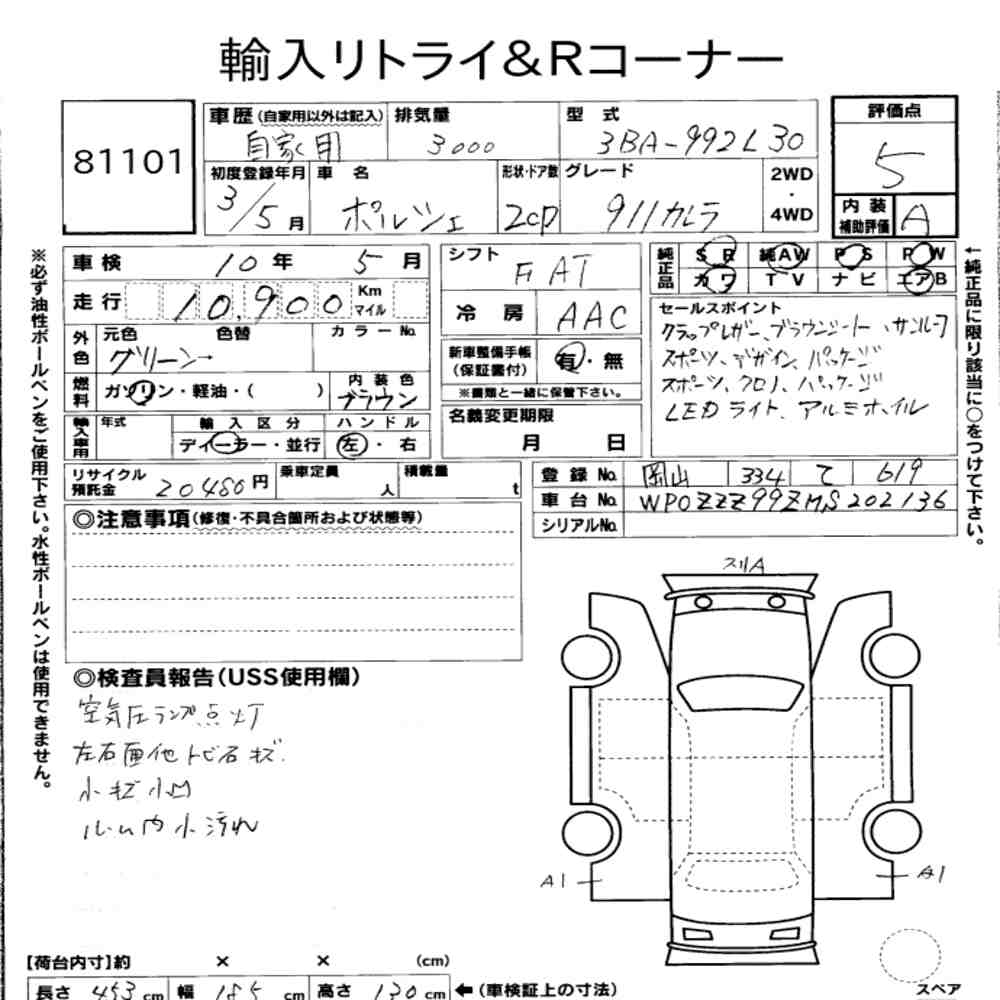 輸入リトライ&Rコーナー
81101
車歴(自家用以外は記入) 排気量 型式 評価点
自家用 3000 3BA-992L30 5
初度登録年月 車名 形状・ドア数 グレード 2WD・4WD 内装補助評価
3/5月 ポルシェ 2cp 911カレラ A
車検 10年 5月 シフト FIAT 純正品 SR 純AW PS PW
走行 10,900 Km マイル 冷房 AAC カワ TV ナビ エアB
外色 元色 色替 カラーNo.
グリーン→
新車整備手帳(保証書付) 有・無
※書類と一緒に保管下さい。
燃料 ガソリン・軽油・( ) 内装色 ブラウン
名義変更期限 月 日
輸入車用 年式 輸入区分 ハンドル
ディーラー・並行 左・右
セールスポイント
クラップレザー、ブラウンシート、サンルーフ
スポーツ、デザイン、パッケージ
スポーツ、クロノ、パッケージ
LEDライト、アルミホイル
リサイクル預託金 20480円 乗車定員 人 積載量 t
登録No. 岡山 334 て 619
車台No. WP0ZZZ99ZMS202136
シリアルNo.
◎注意事項(修復・不具合箇所および状態等)
◎検査員報告(USS使用欄)
空気圧ランプ点灯
左右面他トビ石キズ.
小キズ小凹
ルーム内小汚れ
スリA
A1
A1
スペア
【荷台内寸】約 × × (cm)
長さ 453cm 幅 185cm 高さ 130cm ←(車検証上の寸法)
※必ず油性ボールペンをご使用下さい。水性ボールペンは使用できません。
←純正品に限り該当に○をつけて下さい。